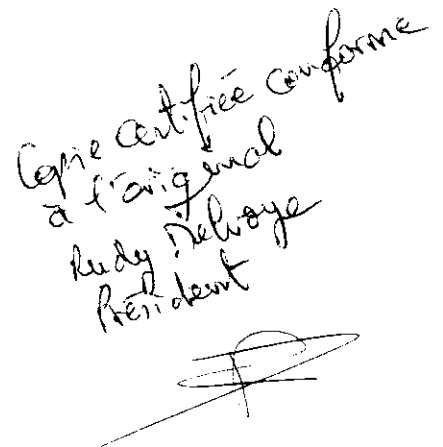 Copie certifiée conforme
à l'original
Rudy Delvoye
Président